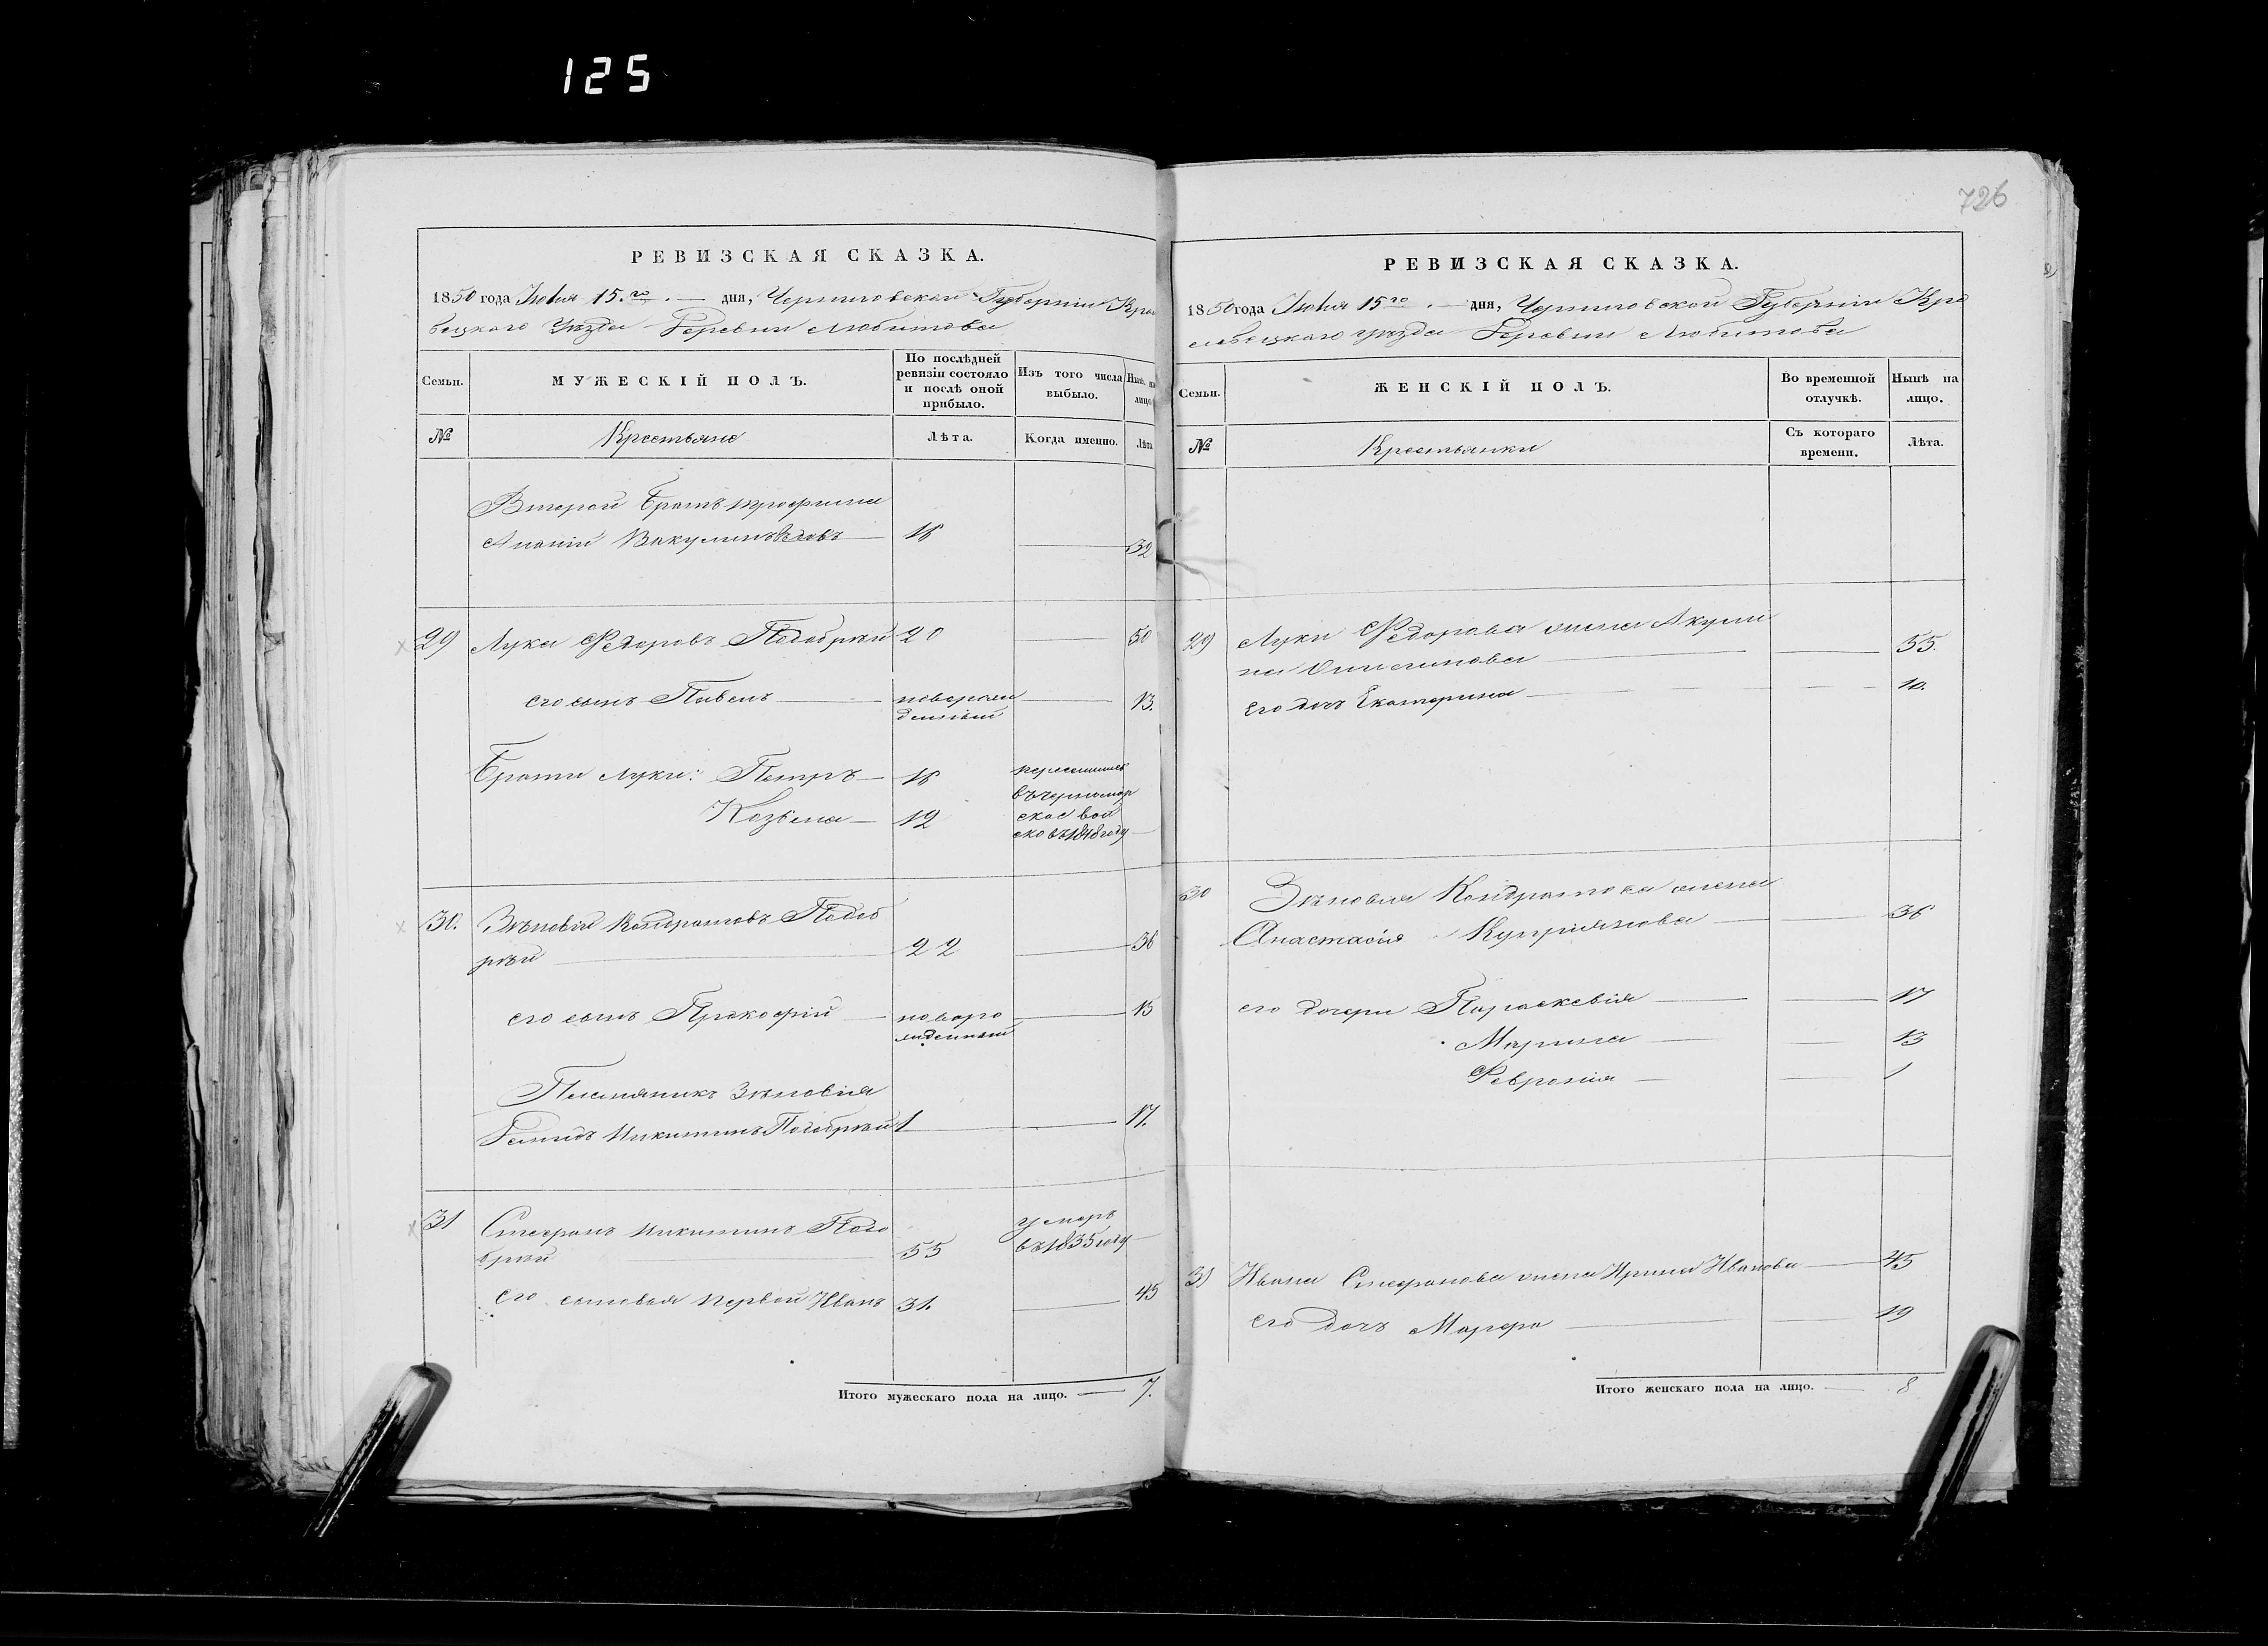 125
726
РЕВИЗСКАЯ СКАЗКА.
1850 года Июня 15.го дня, Черниговской Губерніи Кроле
вецкаго Уезда Деревни Любитова
Семьи.
МУЖЕСКІЙ ПОЛЪ.
По послѣдней
ревизіи состояло
и послѣ оной
прибыло.
Изъ того числа
выбыло.
Нынѣ на
лицо.
№
Крестьяне
Лѣта.
Когда именно.
Лѣта
Второй Братъ трофима
Ананій Вакулинъ 18 32
29 Лука Федоровъ Подобрѣй 20 50
его сынъ Павелъ новорож 13.
денный
Браты Луки: Петръ 18 переселились
Козьма 12 въ черномор
ское вой
ско въ 1848 году
30. Зѣновій Кондратовъ Подоб
рѣй 22 36
его сынъ Прокофій новоро 15
жденный
Племяникъ Зѣновія
Демидъ Никитинъ Подобрѣй 1 17.
31 Стефанъ Никитинъ Подо умеръ
брѣй 55 въ 1835 году
его сыновья первой Иванъ 31. 45
Итого мужескаго пола на лицо. 7.
РЕВИЗСКАЯ СКАЗКА.
1850 года Июня 15го дня, Черниговской Губерніи Кро
левецкаго уезда Деревни Любитова
Семьи.
ЖЕНСКІЙ ПОЛЪ.
Во временной
отлучкѣ.
Нынѣ на
лицо.
№
Крестьянки
Съ котораго
времени.
Лѣта.
29 Луки Федорова жена Акули
на 55.
Его дочь Екатерина 10.
30 Зѣновія Кондратова жена
Анастасія Купріянова 36
его дочери Параскевія 17
Марина 13
Февронія 1
31 Ивана Стефанова жена Ирина Иванова 45
его дочь Марфа 19
Итого женскаго пола на лицо. 8